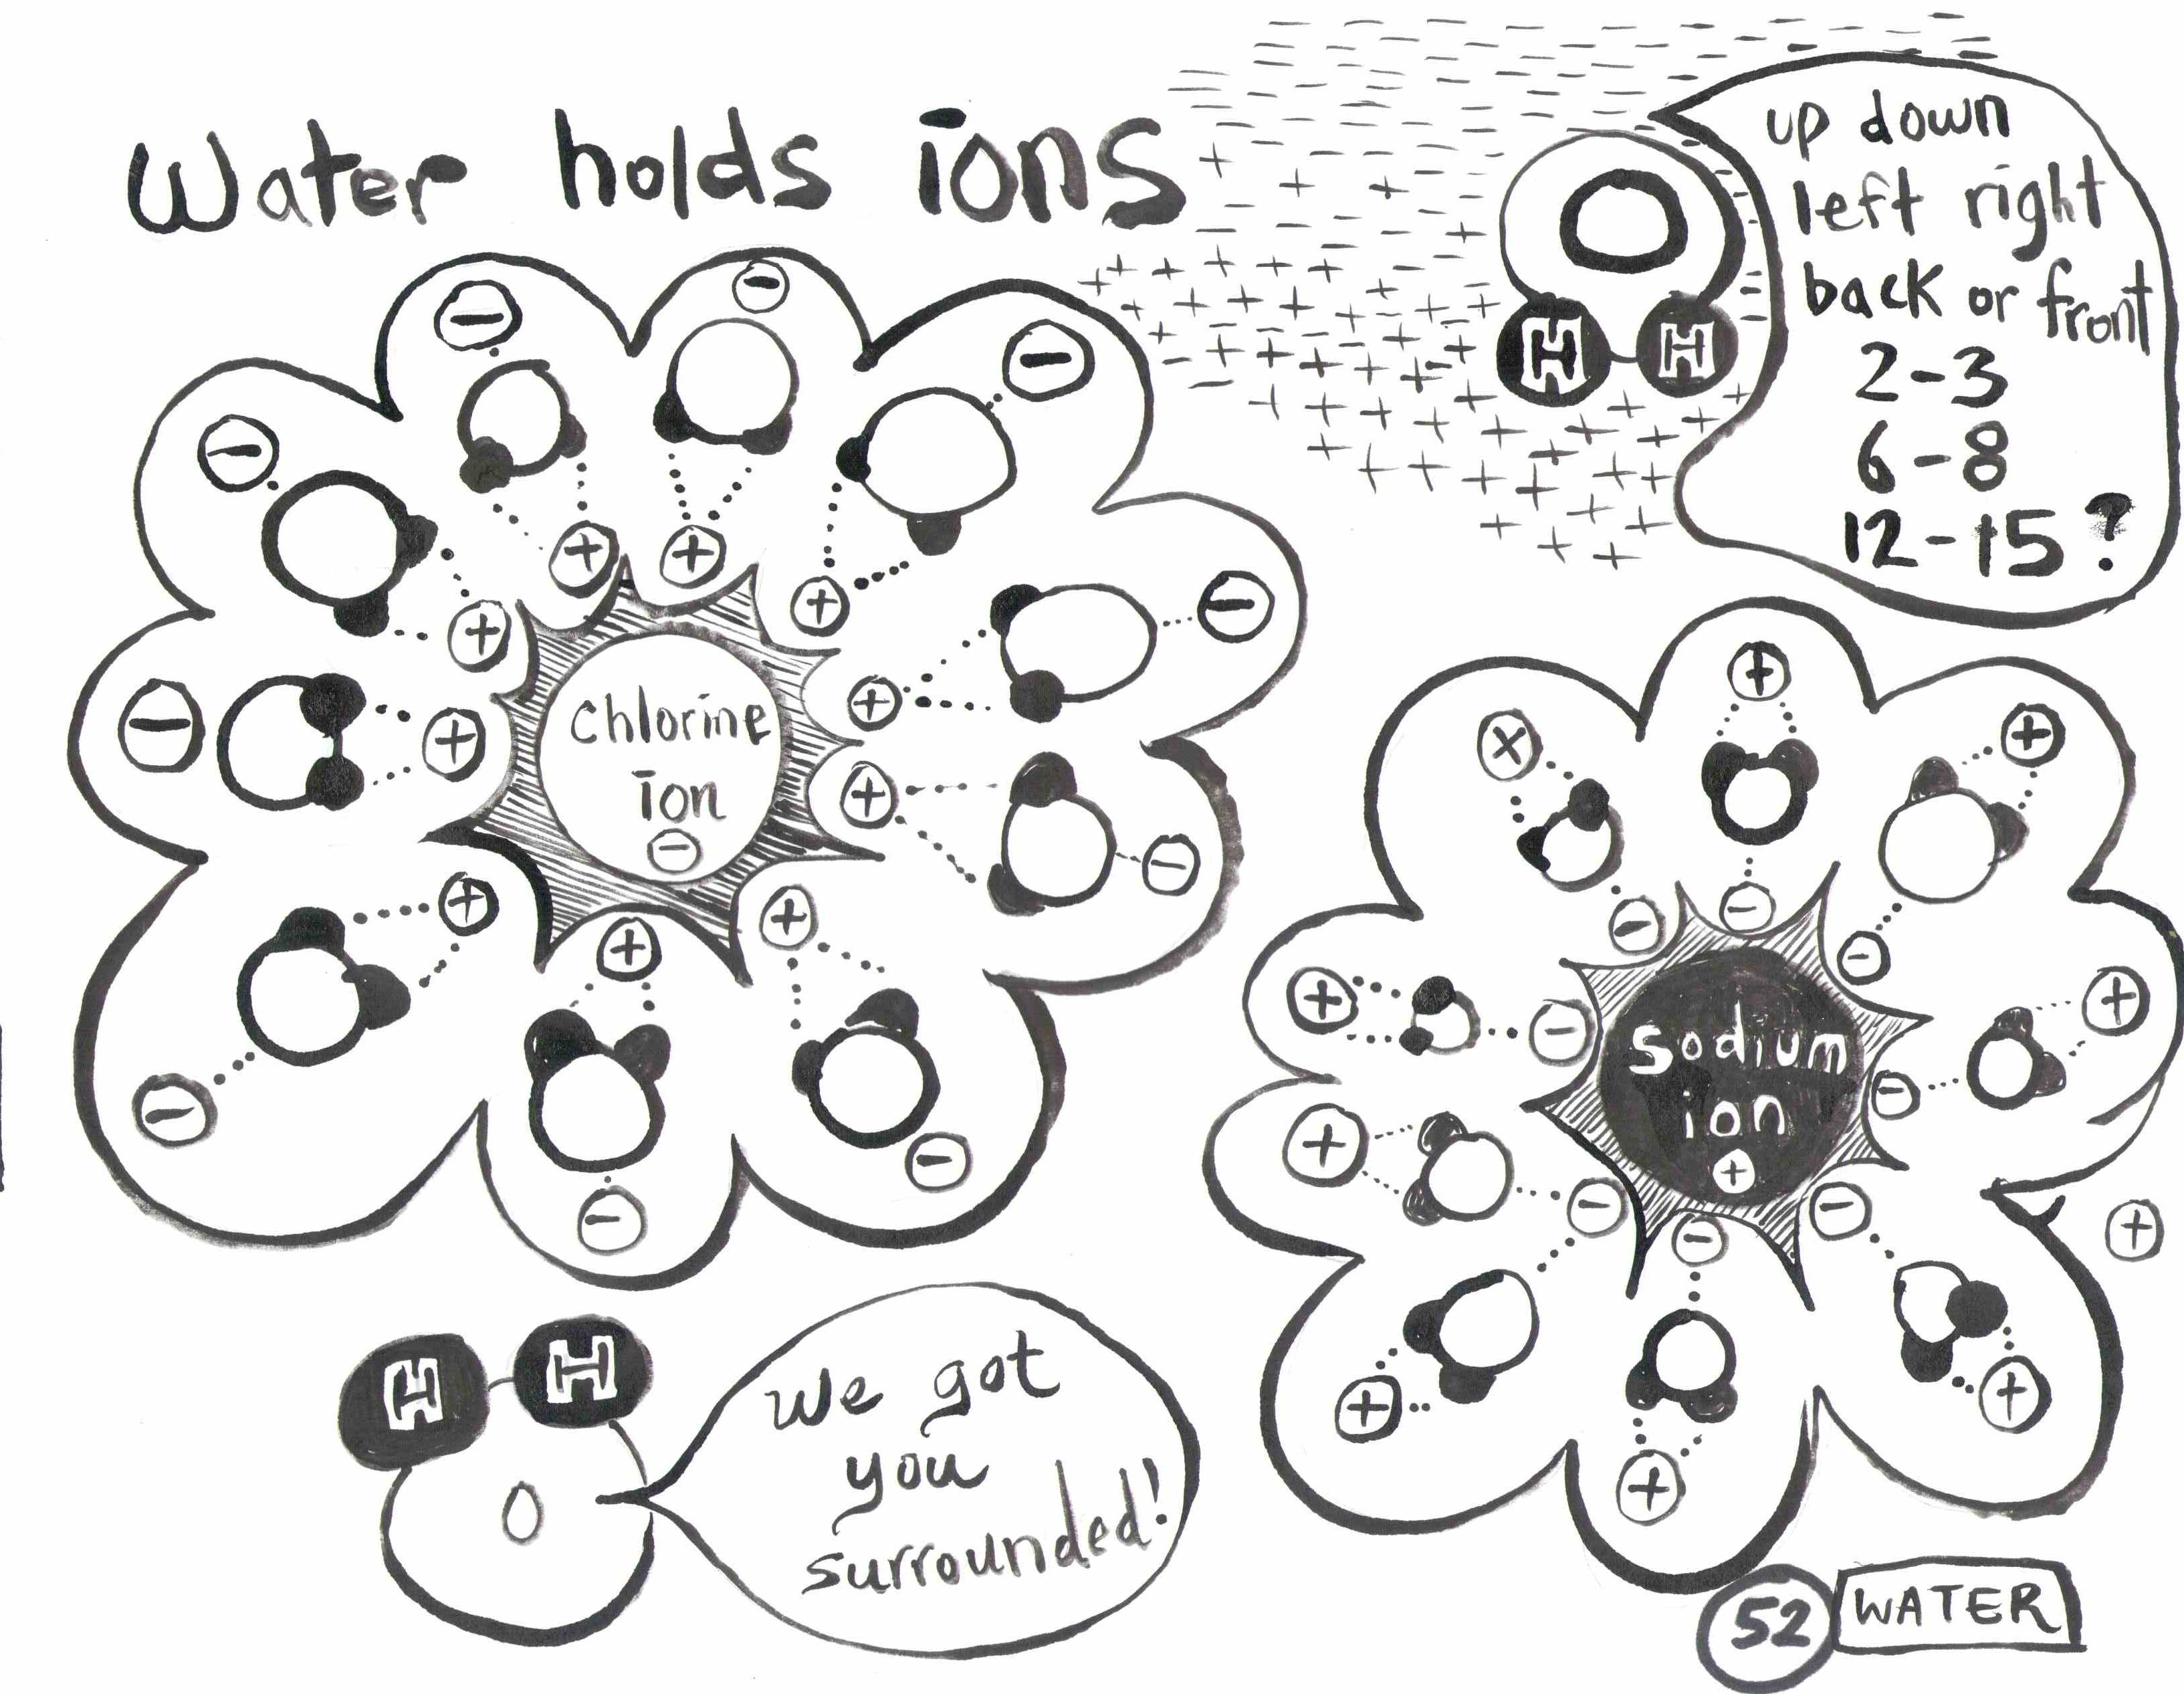 Water holds ions
up down
left right
back or front
2-3
6-8
12-15?
H H
chlorine
ion
sodium
ion
H H
O
We got
you
surrounded!
52 WATER